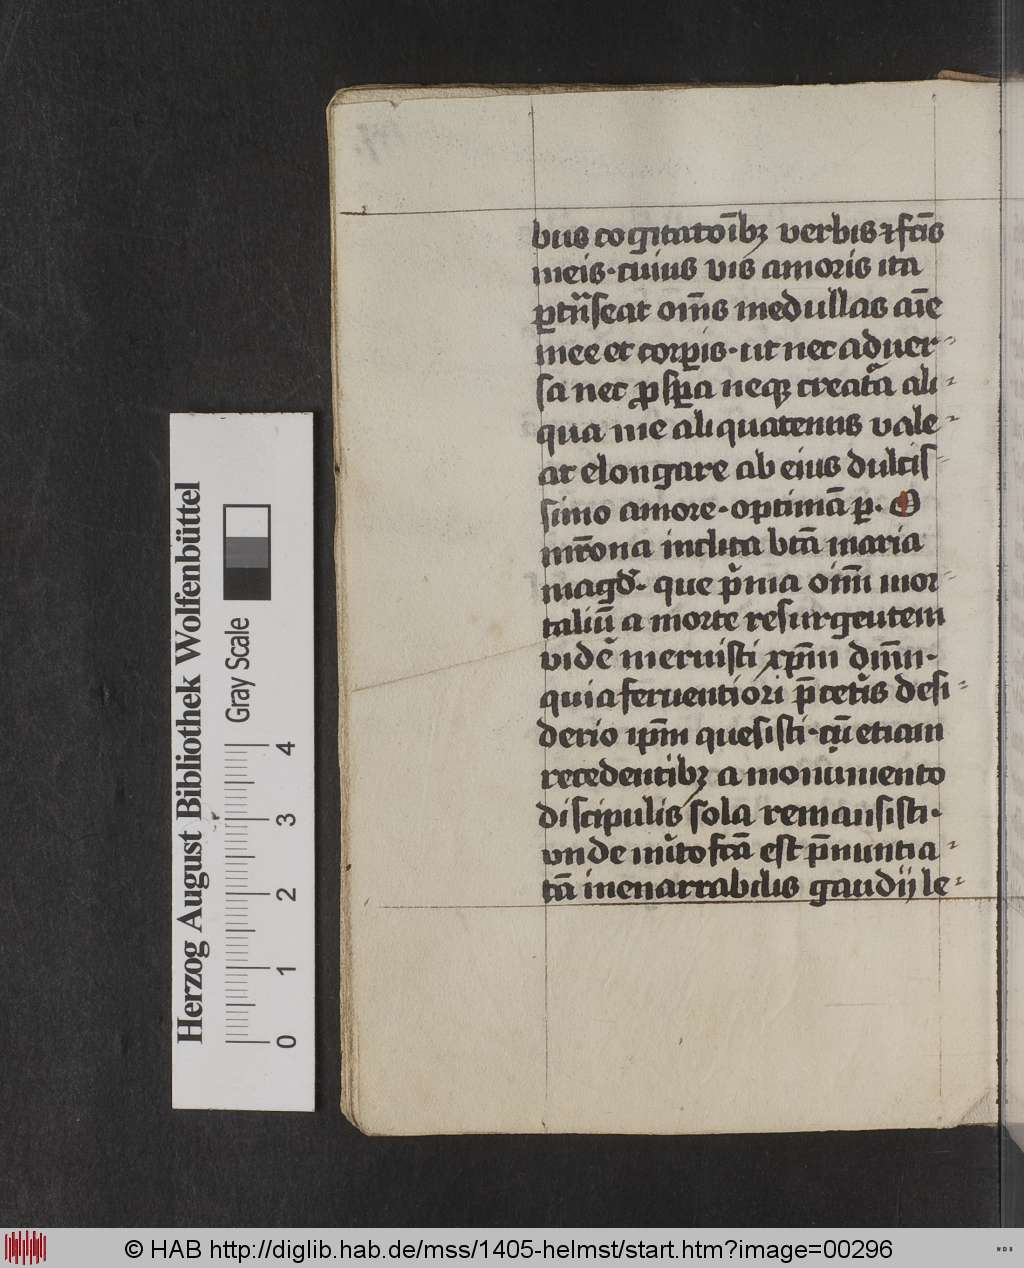 bus cogitatōibꝫ verbis ⁊ fc̄is
meis · cuius vis amoris ita
ꝑtrāseat om̄s medullas aīe
mee et corꝑis · ut nec aduer-
sa nec ꝓsꝑa neqꝫ creat̄a ali-
qua me aliquatenus vale-
at elongare ab eius dulcis-
simo amore · optimā p̲. O
mr̄ona inclita btā maria
magd̓ · que p̄ma oīm mor-
taliū a morte resurgentem
vidē meruisti xp̄m dm̄ ·
quia feruentiori p̄ cet̄is desi-
derio ip̄m quesisti · cū etiam
recedentibꝫ a monumento
discipulis sola remansisti ·
vnde m̄ito fc̄a est p̄nuntia-
tā inenarrabilis gaudij le-
Herzog August Bibliothek Wolfenbüttel
Gray Scale
0 1 2 3 4
© HAB http://diglib.hab.de/mss/1405-helmst/start.htm?image=00296